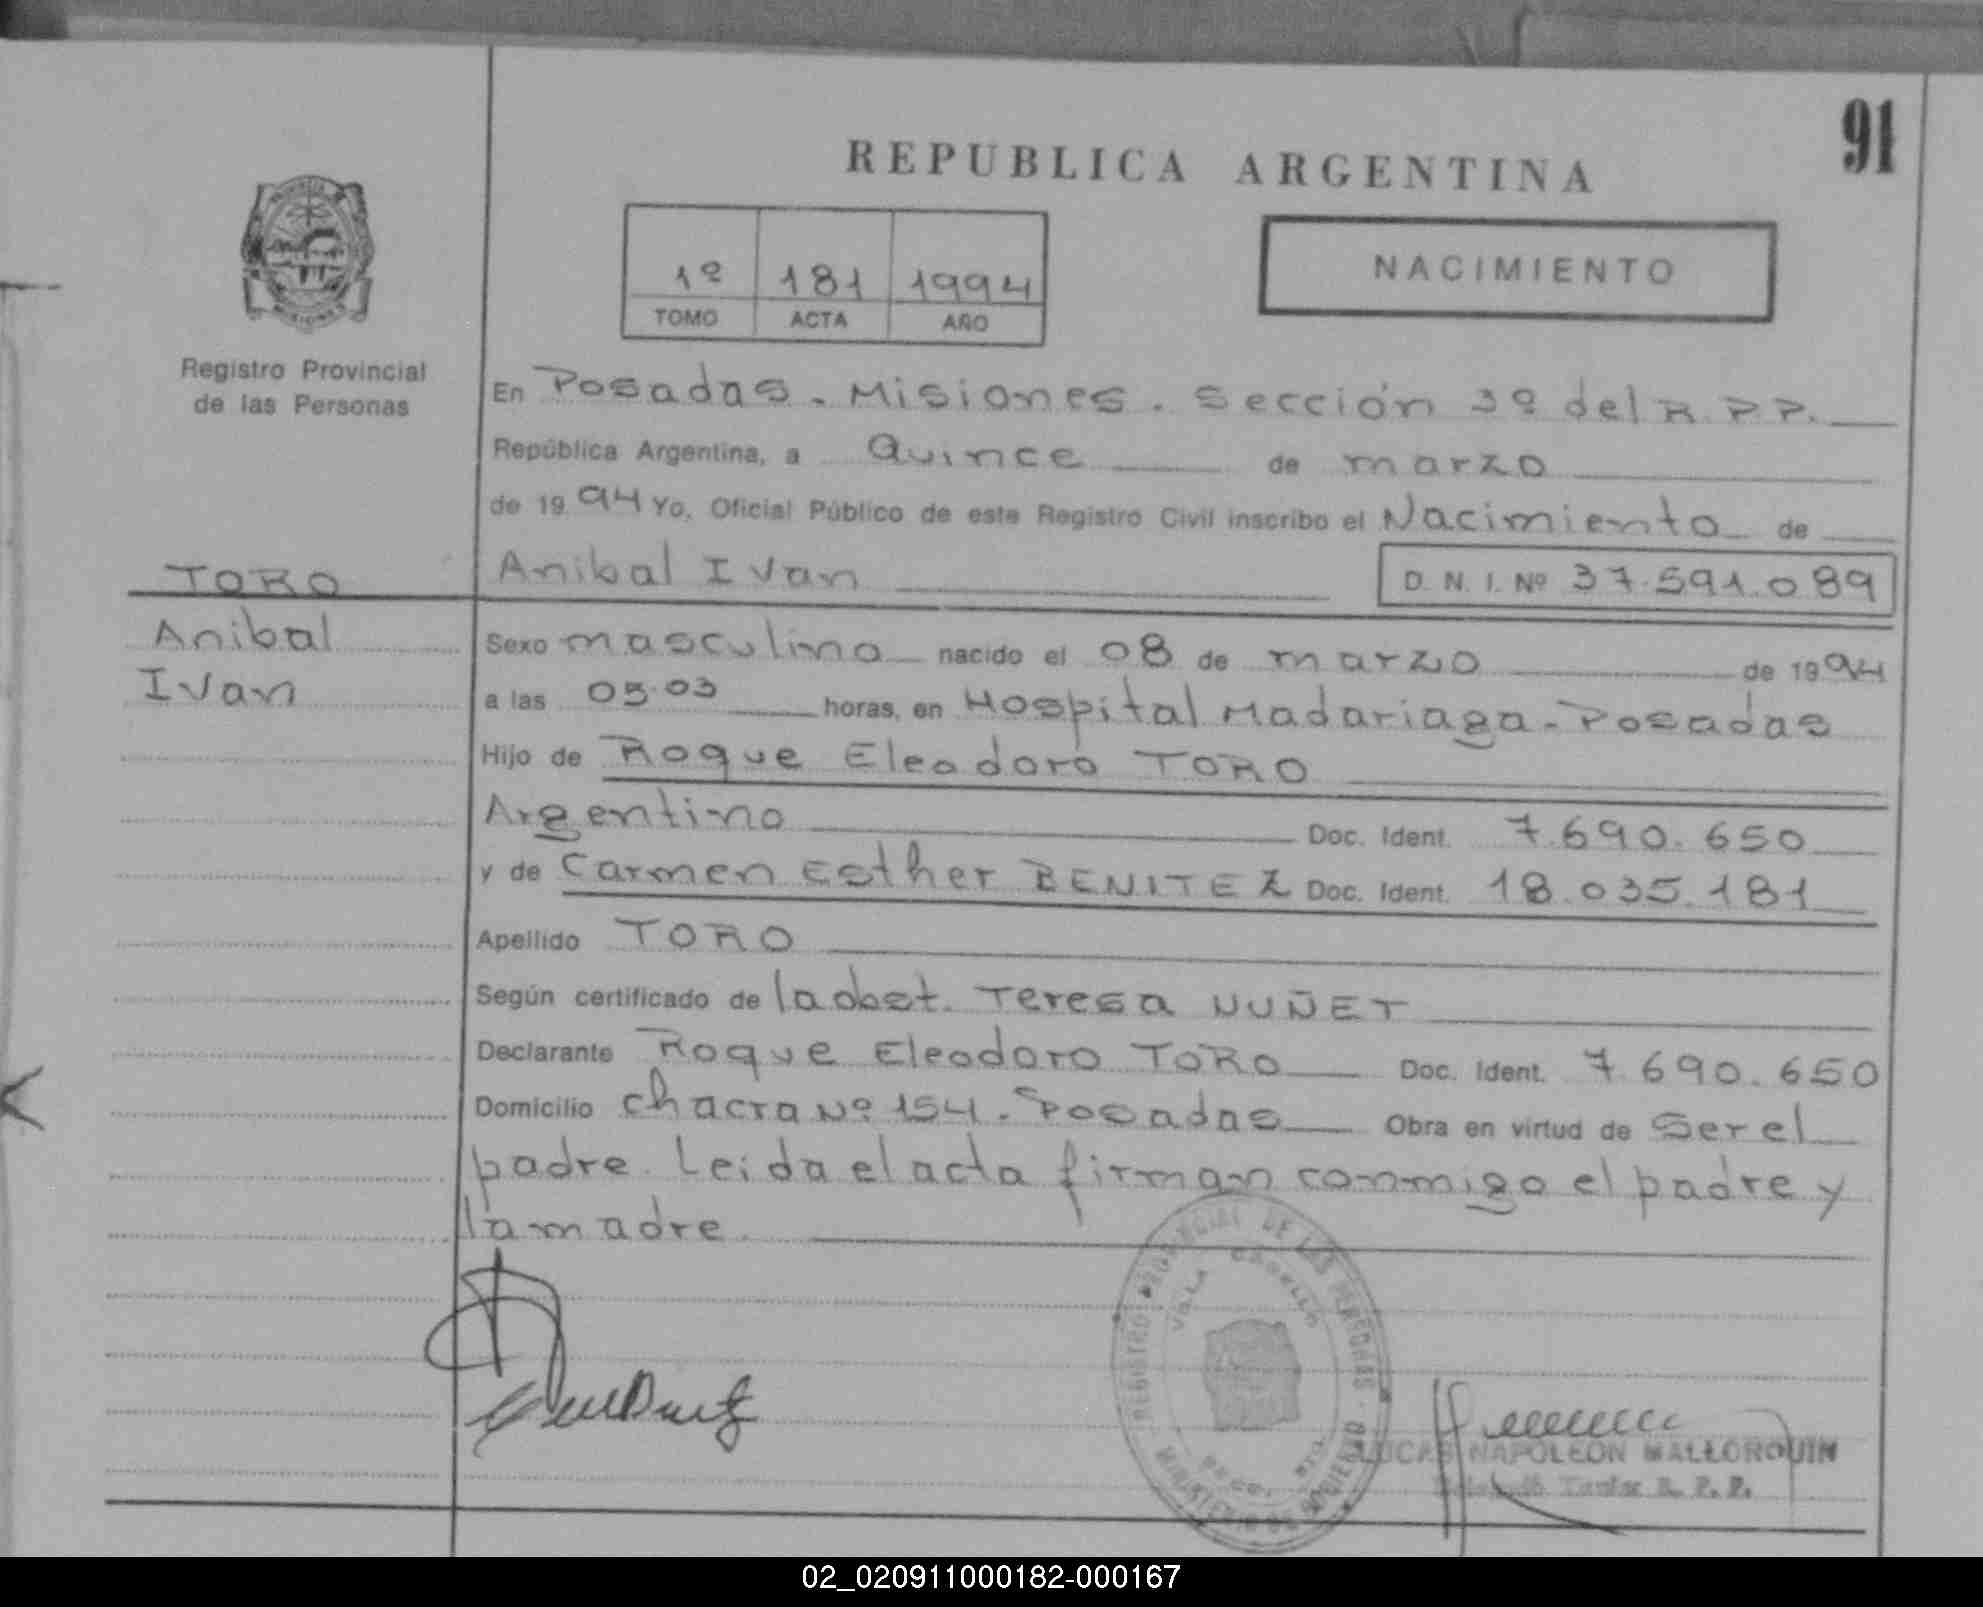 91
REPUBLICA ARGENTINA
1º 181 1994
TOMO ACTA AÑO
NACIMIENTO
MISIONES
Registro Provincial
de las Personas
En Posadas. Misiones. Sección 3º del R.P.P.
República Argentina, a Quince de marzo
de 1994 Yo, Oficial Público de este Registro Civil inscribo el Nacimiento de
TORO
Anibal Ivan D. N. I. Nº 37.591.089
Anibal
Ivan
Sexo masculino nacido el 08 de marzo de 1994
a las 05.03 horas, en Hospital Madariaga - Posadas
Hijo de Roque Eleodoro TORO
Argentino Doc. Ident. 7.690.650
y de Carmen Esther BENITEZ Doc. Ident. 18.035.181
Apellido TORO
Según certificado de la obst. Teresa NUÑET
Declarante Roque Eleodoro TORO Doc. Ident. 7.690.650
Domicilio chacra Nº 154. Posadas Obra en virtud de ser el
padre. Leida el acta firman conmigo el padre y
la madre.
REGISTRO PROVINCIAL DE LAS PERSONAS
VILLA CABELLO
MINISTERIO DE GOBIERNO
LUCAS NAPOLEON MALLORQUIN
R. P. P.
02_020911000182-000167